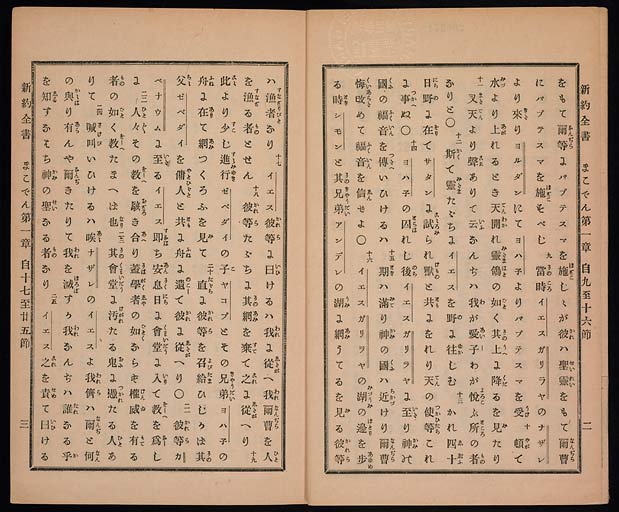 新約全書 まこでん第一章 自九至十六節 二
をもて爾等にバプテスマを施しゝが彼ハ聖靈をもて爾曹
にバプテスマを施すべし 九 當時イエスガリラヤのナザレ
より來りヨルダンにてヨハ子よりバプテスマを受 十 頓て
水より上れるとき天開れ靈鴿の如く其上に降るを見たり
十一 又天より聲ありて云なんぢハ我が愛子わが悅ぶ所の者
なりと〇 十二 斯て靈たゞちにイエスを野に往しむ 十三 かれ四十
日野に在てサタンに試られ獸と共にをれり天の使等これ
に事ぬ〇 十四 ヨハ子の囚れし後イエスガリラヤに至り神の
國の福音を傳いひけるハ 十五 期ハ滿り神の國ハ近けり爾曹
悔改めて福音を信ぜよ〇 十六 イエスガリラヤの湖の邊を歩
る時シモンと其兄弟アンデレの湖に網うてるを見る彼等
ハ漁者なり 十七 イエス彼等に曰けるハ我に從へ我爾曹を人
を漁る者とせん 十八 彼等たゞちに其網を棄て之に從へり 十九
此より少し進行ゼベダイの子ヤコブとその兄弟ヨハ子の
舟に在て網つくろふを見て 二十 直に彼等を召給ひしかば其
父ゼベダイを傭人と共に舟に遺て彼に從へり〇 二一 彼等カ
ペナウムに至るイエス即ち安息日に會堂に入て教を爲し
に 二二 人々その教を駭き合り蓋學者の如ならず權威を有る
者の如く教たまへば也 二三 其會堂に汚たる鬼に憑たる人あ
りて 二四 喊叫いひけるハ唉ナザレのイエスよ我儕ハ爾と何
の與り有んや爾きたりて我を滅すか我なんぢハ誰なる乎
を知すなハち神の聖なる者なり 二五 イエス之を責て曰ける
新約全書 まこでん第一章 自十七至廿五節 三